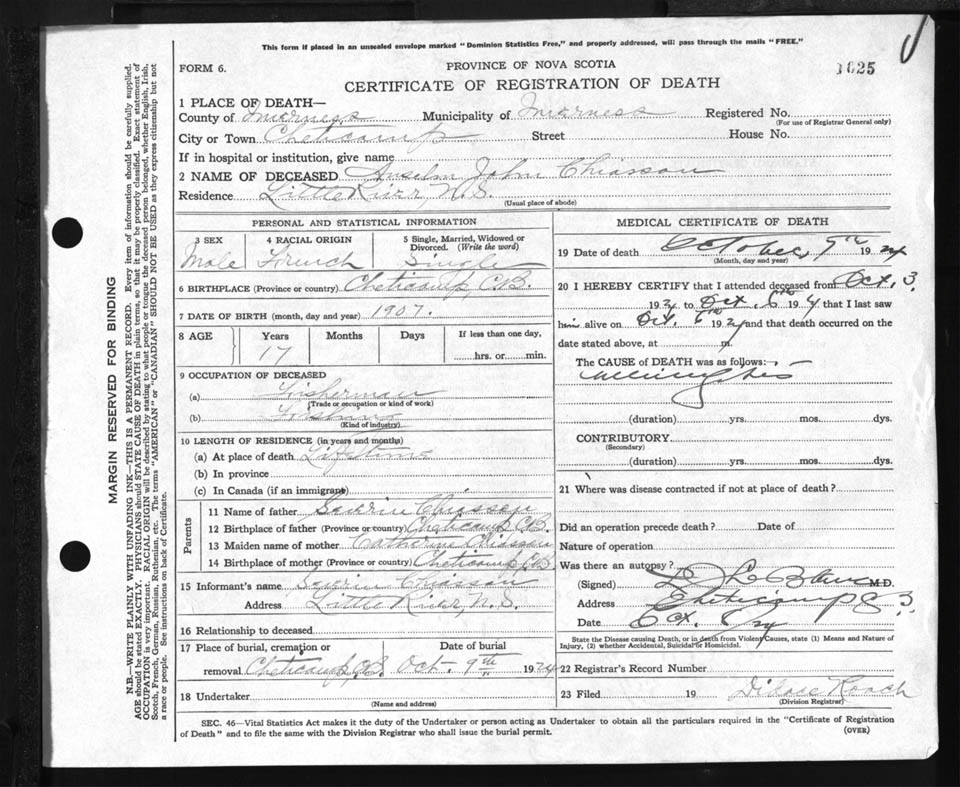 This form if placed in an unsealed envelope marked "Dominion Statistics Free," and properly addressed, will pass through the mails "FREE."
FORM 6.
PROVINCE OF NOVA SCOTIA
1625
CERTIFICATE OF REGISTRATION OF DEATH
1 PLACE OF DEATH—
County of Inverness Municipality of Inverness Registered No.
(For use of Registrar General only)
City or Town Cheticamp Street House No.
If in hospital or institution, give name
2 NAME OF DECEASED Anselm John Chiasson
Residence Little River, N.S.
(Usual place of abode)
PERSONAL AND STATISTICAL INFORMATION
3 SEX 4 RACIAL ORIGIN 5 Single, Married, Widowed or Divorced. (Write the word)
Male French Single
6 BIRTHPLACE (Province or country) Cheticamp, C.B.
7 DATE OF BIRTH (month, day and year) 1907.
8 AGE Years Months Days If less than one day,
17 hrs. or min.
9 OCCUPATION OF DECEASED
(a) Fisherman
(Trade or occupation or kind of work)
(b) Fishing
(Kind of industry)
10 LENGTH OF RESIDENCE (in years and months)
(a) At place of death Lifetime
(b) In province
(c) In Canada (if an immigrant)
Parents
11 Name of father Severin Chiasson
12 Birthplace of father (Province or country) Cheticamp, C.B.
13 Maiden name of mother Catherine Chiasson
14 Birthplace of mother (Province or country) Cheticamp, C.B.
15 Informant's name Severin Chiasson
Address Little River, N.S.
16 Relationship to deceased
17 Place of burial, cremation or Date of burial
removal Cheticamp, C.B. Oct. 9th 1924
18 Undertaker
(Name and address)
MEDICAL CERTIFICATE OF DEATH
19 Date of death October, 7th 1924
(Month, day and year)
20 I HEREBY CERTIFY that I attended deceased from Oct. 3
1924 to Oct. 6th 1924 that I last saw
him alive on Oct. 6th 1924 and that death occurred on
date stated above, at m.
The CAUSE of DEATH was as follows:
Meningitis
(duration) yrs. mos. dys.
CONTRIBUTORY
(Secondary)
(duration) yrs. mos. dys.
21 Where was disease contracted if not at place of death?
Did an operation precede death? Date of
Nature of operation
Was there an autopsy?
(Signed) L. J. LeBlanc M.D.
Address Cheticamp
Date Oct. 8/24
State the Disease causing Death, or in death from Violent Causes, state (1) Means and Nature of
Injury, (2) whether Accidental, Suicidal or Homicidal.
22 Registrar's Record Number
23 Filed 19 Roach
(Division Registrar)
SEC. 46—Vital Statistics Act makes it the duty of the Undertaker or person acting as Undertaker to obtain all the particulars required in the "Certificate of Registration
of Death" and to file the same with the Division Registrar who shall issue the burial permit.
(OVER)
MARGIN RESERVED FOR BINDING
N.B.—WRITE PLAINLY WITH UNFADING INK—THIS IS A PERMANENT RECORD. Every item of information should be carefully supplied.
AGE should be stated EXACTLY. PHYSICIANS should STATE CAUSE OF DEATH in plain terms, so that it may be properly classified. Exact statement of
OCCUPATION is very important. RACIAL ORIGIN will be described by stating to what people or tongue the deceased person belonged, whether English, Irish,
Scotch, French, German, Russian, Ruthenian, etc. The terms "AMERICAN" or "CANADIAN" SHOULD NOT BE USED as they express citizenship but not
a race or people. See instructions on back of Certificate.